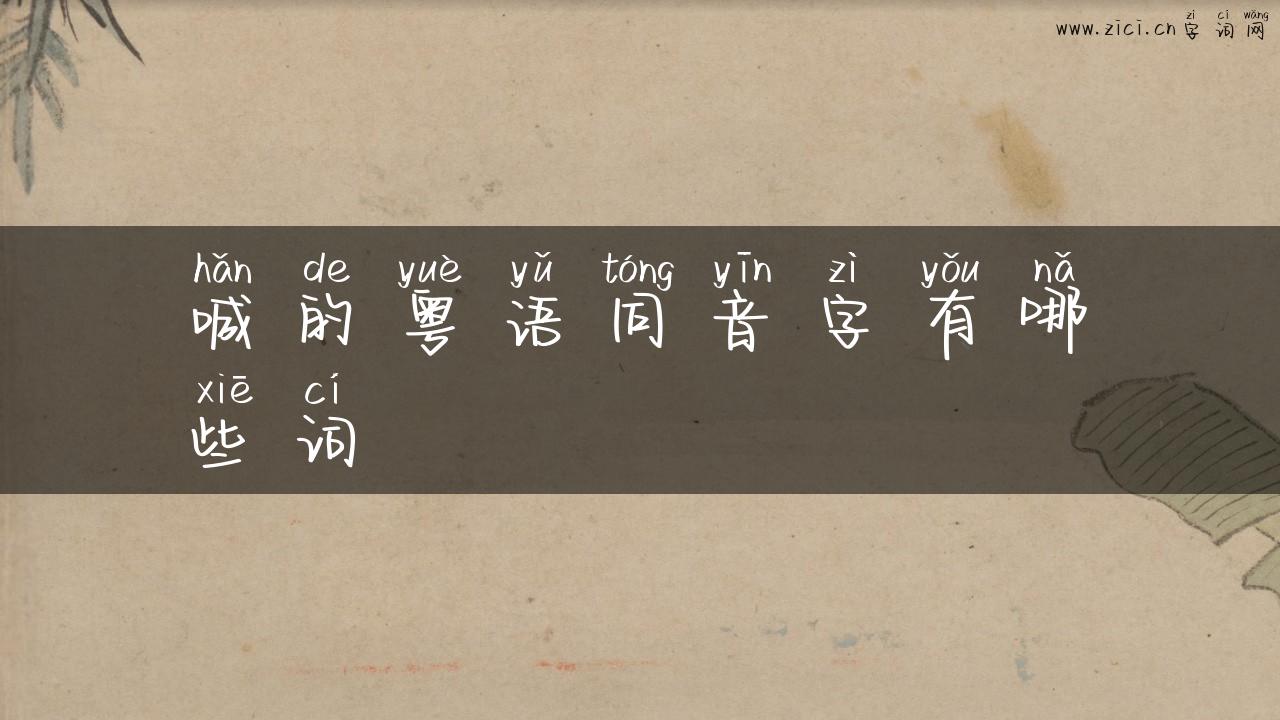 zì cí wǎng
www.zici.cn 字 词 网
hǎn de yuè yǔ tóng yīn zì yǒu nǎ
喊 的 粤 语 同 音 字 有 哪
xiē cí
些 词